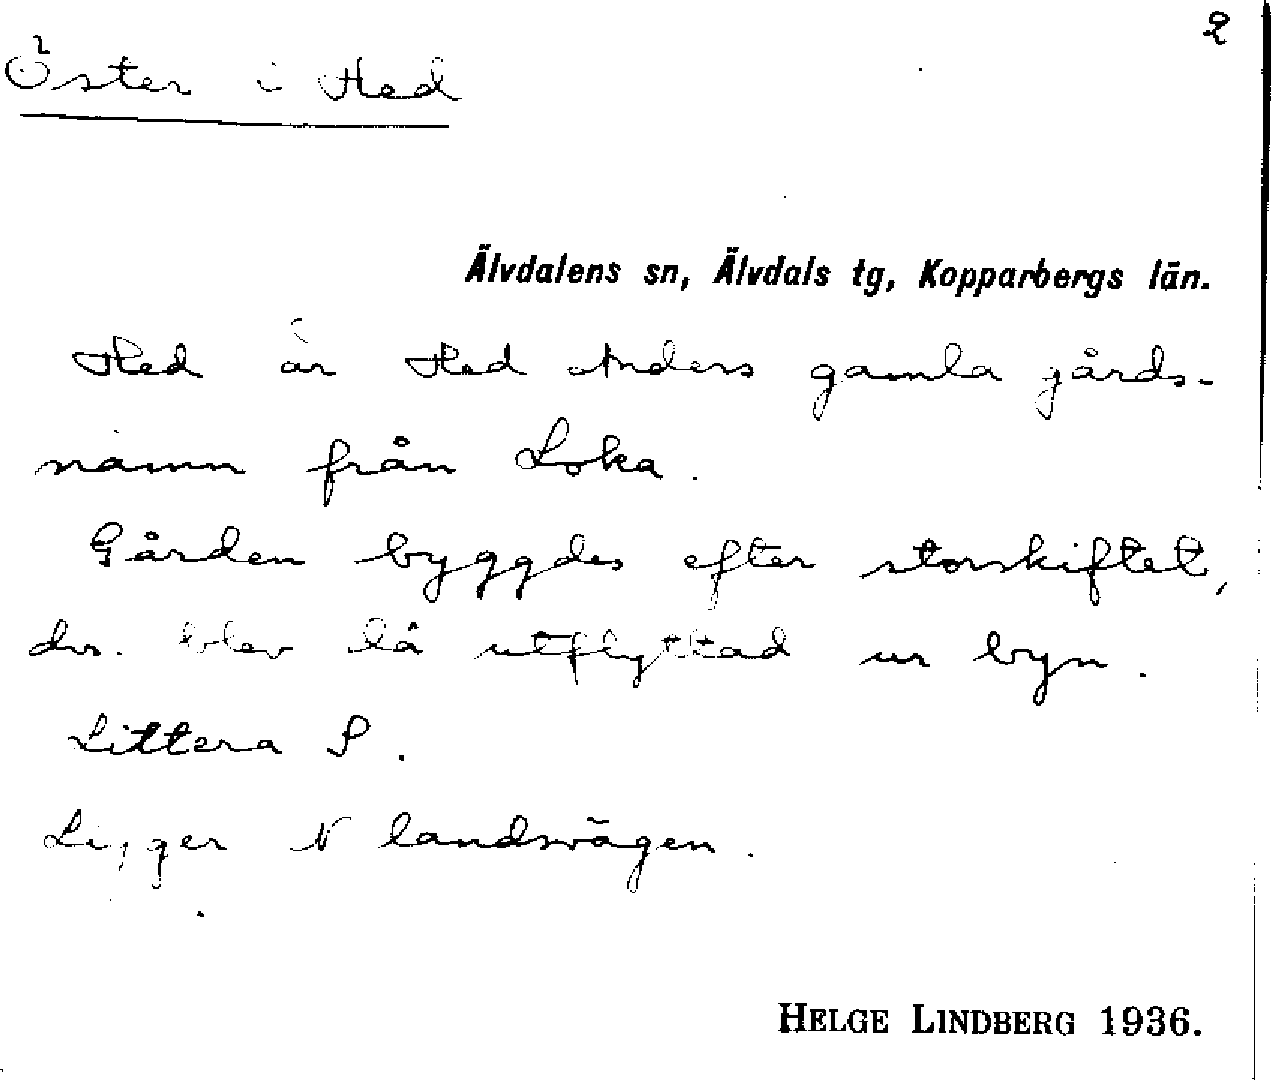 2
Öster i Hed
Älvdalens sn, Älvdals tg, Kopparbergs län.
Hed är Hed Anders gamla gårds-
namn från Loka.
Gården byggdes efter storskiftet,
dvs. blev då utflyttad ur byn.
Littera P.
Ligger N landsvägen.
HELGE LINDBERG 1936.